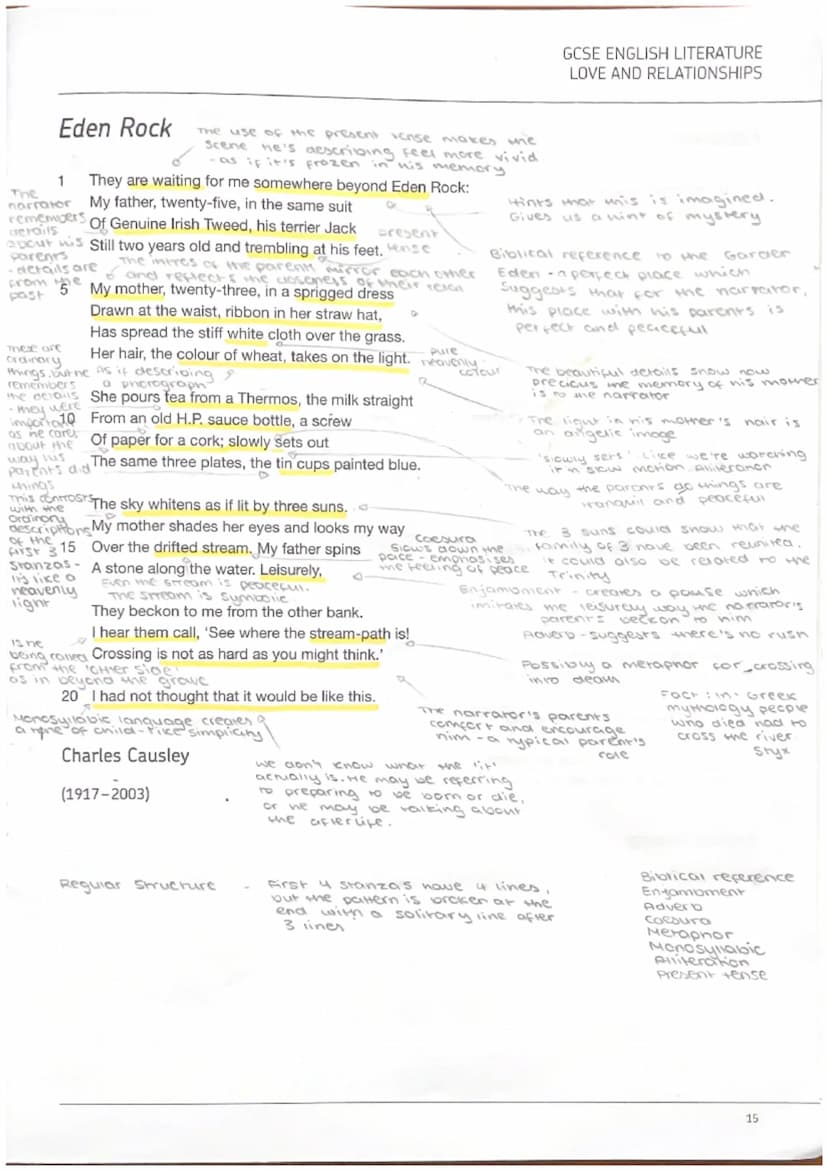 GCSE ENGLISH LITERATURE
LOVE AND RELATIONSHIPS
Eden Rock
The use of the present tense makes the
scene he's describing feel more vivid
- as if it's frozen in his memory
1 They are waiting for me somewhere beyond Eden Rock:
My father, twenty-five, in the same suit
Of Genuine Irish Tweed, his terrier Jack
Still two years old and trembling at his feet.
present
tense
The
narrator
remembers
details
about his
parents
- details are
from the
past
Hints that this is imagined.
Gives us a hint of mystery
Biblical reference to the Garden
Eden - a perfect place which
suggests that for the narrator,
this place with his parents is
perfect and peaceful
The intros of the parents mirror each other
and reflects the closeness of their
5 My mother, twenty-three, in a sprigged dress
Drawn at the waist, ribbon in her straw hat,
Has spread the stiff white cloth over the grass.
Her hair, the colour of wheat, takes on the light.
pure
heavenly
colour
As if describing
a photograph
These are
ordinary
things, but he
remembers
the details
- they were
important
as he cares
about the
way his
parents did
things
The beautiful details show how
precious the memory of his mother
is to the narrator
The light in his mother's hair is
an angelic image
She pours tea from a Thermos, the milk straight
10 From an old H.P. sauce bottle, a screw
Of paper for a cork; slowly sets out
The same three plates, the tin cups painted blue.
'slowly sets' like we're watching
it in slow motion. Alliteration
The way the parents do things are
tranquil and peaceful
This contrasts
with the
ordinary
descriptions
of the
first 3
stanzas -
it's like a
heavenly
light
The sky whitens as if lit by three suns.
My mother shades her eyes and looks my way
15 Over the drifted stream. My father spins
A stone along the water. Leisurely,
Caesura
slows down the
pace - emphasises
the feeling of peace
Even the stream is peaceful.
The stream is symbolic
The 3 suns could show that the
family of 3 have been reunited.
It could also be related to the
Trinity
Enjambment - creates a pause which
imitates the leisurely way the narrator's
parents beckon to him
Adverb - suggests there's no rush
They beckon to me from the other bank.
I hear them call, 'See where the stream-path is!
Crossing is not as hard as you might think.'
Is he
being called
from the 'other side'
as in beyond the grave
Possibly a metaphor for crossing
into death
20 I had not thought that it would be like this.
Monosyllabic language creates
a tone of child-like simplicity
The narrator's parents
comfort and encourage
him - a typical parent's
role
Fact: in Greek
mythology people
who died had to
cross the river
Styx
Charles Causley
(1917–2003)
We don't know what the 'it'
actually is. He may be referring
to preparing to be born or die,
or he may be talking about
the afterlife.
Regular Structure - First 4 stanzas have 4 lines,
but the pattern is broken at the
end with a solitary line after
3 lines
Biblical reference
Enjambment
Adverb
Caesura
Metaphor
Monosyllabic
Alliteration
Present tense
15